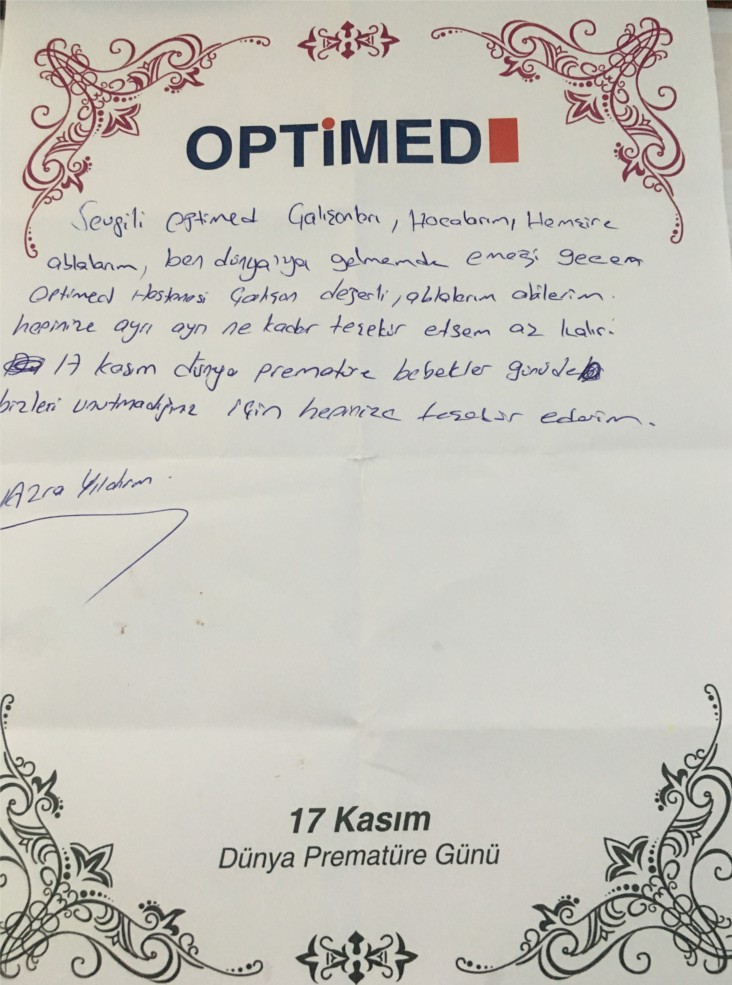 OPTiMED
Sevgili Optimed Çalışanları, Hocalarım, Hemşire
ablalarım, ben dünya'ya gelmemde emeği geçen
Optimed Hastanesi Çalışan değerli, ablalarım abilerim.
hepinize ayrı ayrı ne kadar teşekür etsem az kalır.
17 kasım dünya prematüre bebekler günüde
bizleri unutmadığınız için hepinize teşekür ederim.
Azra Yıldırım.
17 Kasım
Dünya Prematüre Günü